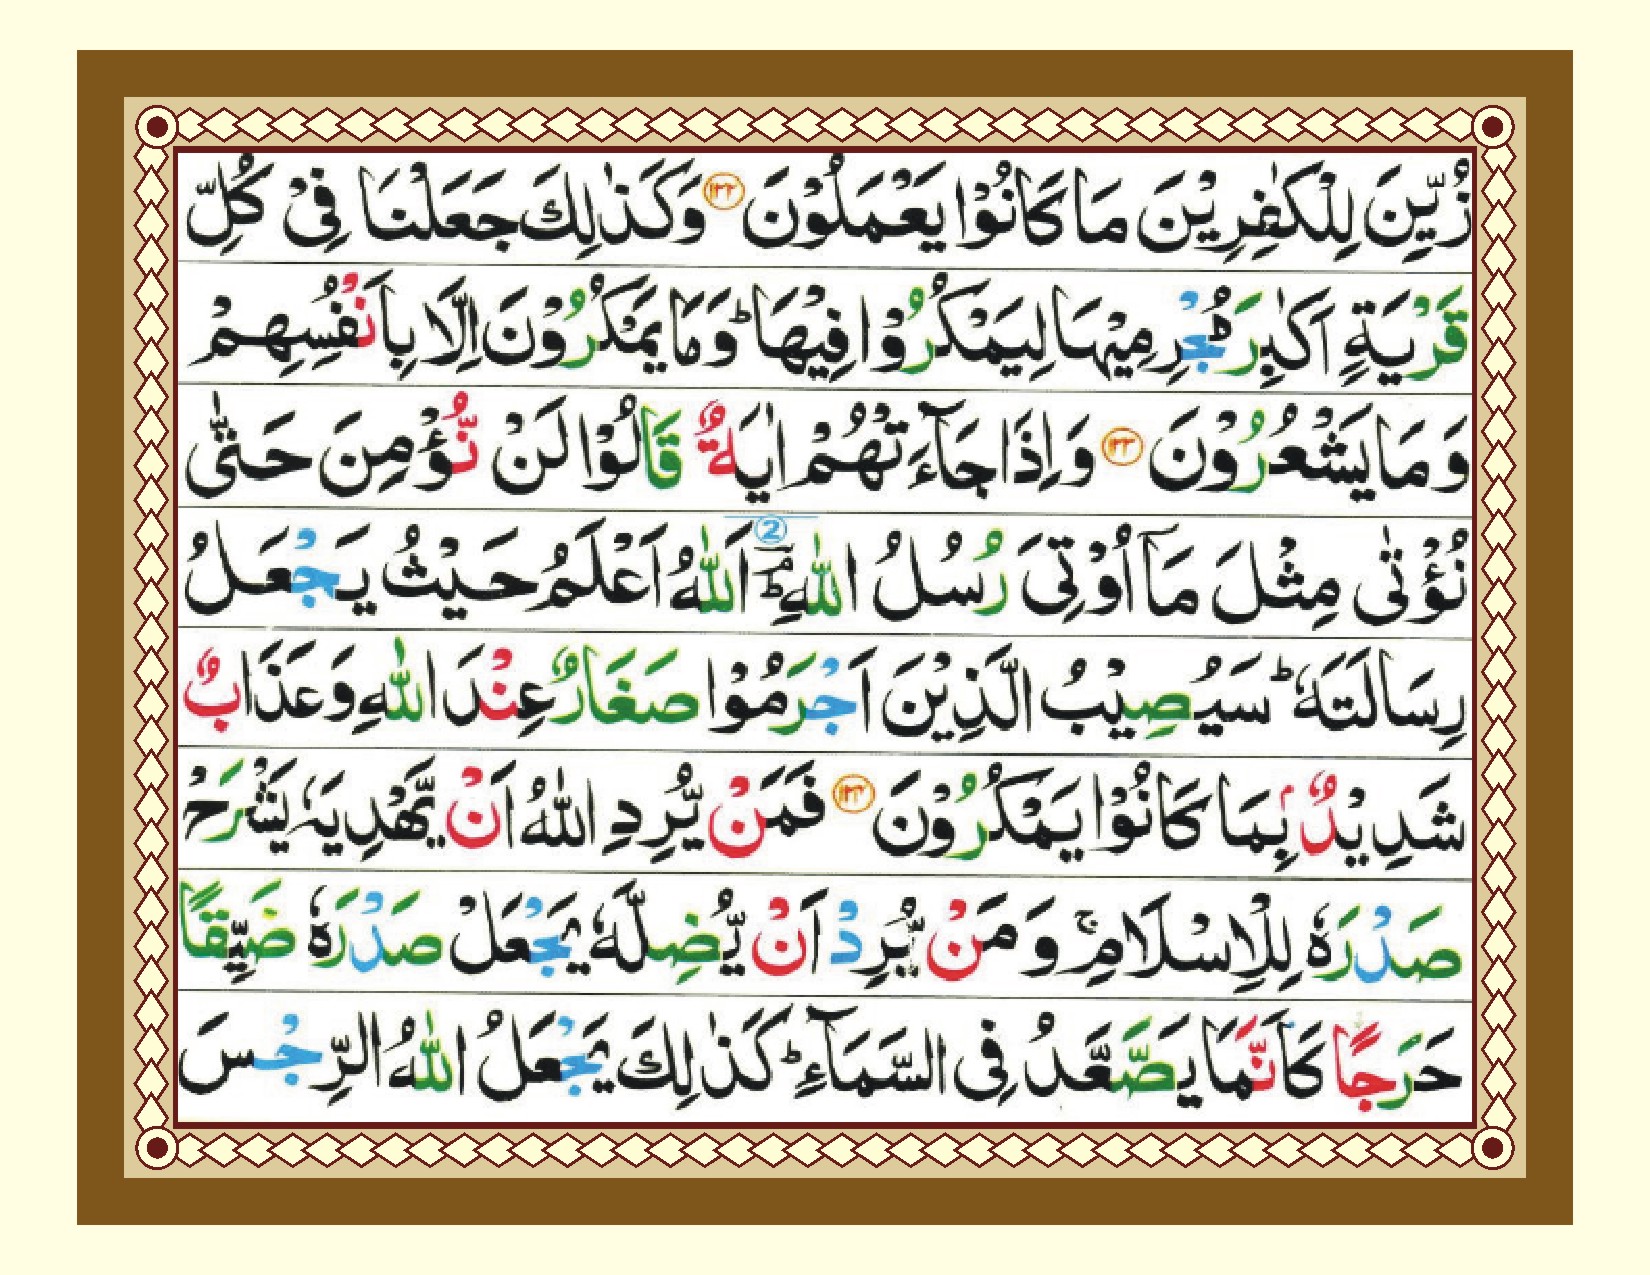 زُیِّنَ لِلْكٰفِرِیْنَ مَا كَانُوْا یَعْمَلُوْنَ ﴿۱۲۲﴾ وَكَذٰلِكَ جَعَلْنَا فِیْ كُلِّ
قَرْیَةٍ اَكٰبِرَ مُجْرِمِیْهَا لِیَمْكُرُوْا فِیْهَا ؕ وَمَا یَمْكُرُوْنَ اِلَّا بِاَنْفُسِهِمْ
وَمَا یَشْعُرُوْنَ ﴿۱۲۳﴾ وَاِذَا جَآءَتْهُمْ اٰیَةٌ قَالُوْا لَنْ نُّؤْمِنَ حَتّٰی
نُؤْتٰی مِثْلَ مَاۤ اُوْتِیَ رُسُلُ اللّٰهِ ؔۘؕ 2 اَللّٰهُ اَعْلَمُ حَیْثُ یَجْعَلُ
رِسَالَتَهٗ ؕ سَیُصِیْبُ الَّذِیْنَ اَجْرَمُوْا صَغَارٌ عِنْدَ اللّٰهِ وَعَذَابٌ
شَدِیْدٌۢ بِمَا كَانُوْا یَمْكُرُوْنَ ﴿۱۲۴﴾ فَمَنْ یُّرِدِ اللّٰهُ اَنْ یَّهْدِیَهٗ یَشْرَحْ
صَدْرَهٗ لِلْاِسْلَامِ ۚ وَمَنْ یُّرِدْ اَنْ یُّضِلَّهٗ یَجْعَلْ صَدْرَهٗ ضَیِّقًا
حَرَجًا كَاَنَّمَا یَصَّعَّدُ فِی السَّمَآءِ ؕ كَذٰلِكَ یَجْعَلُ اللّٰهُ الرِّجْسَ